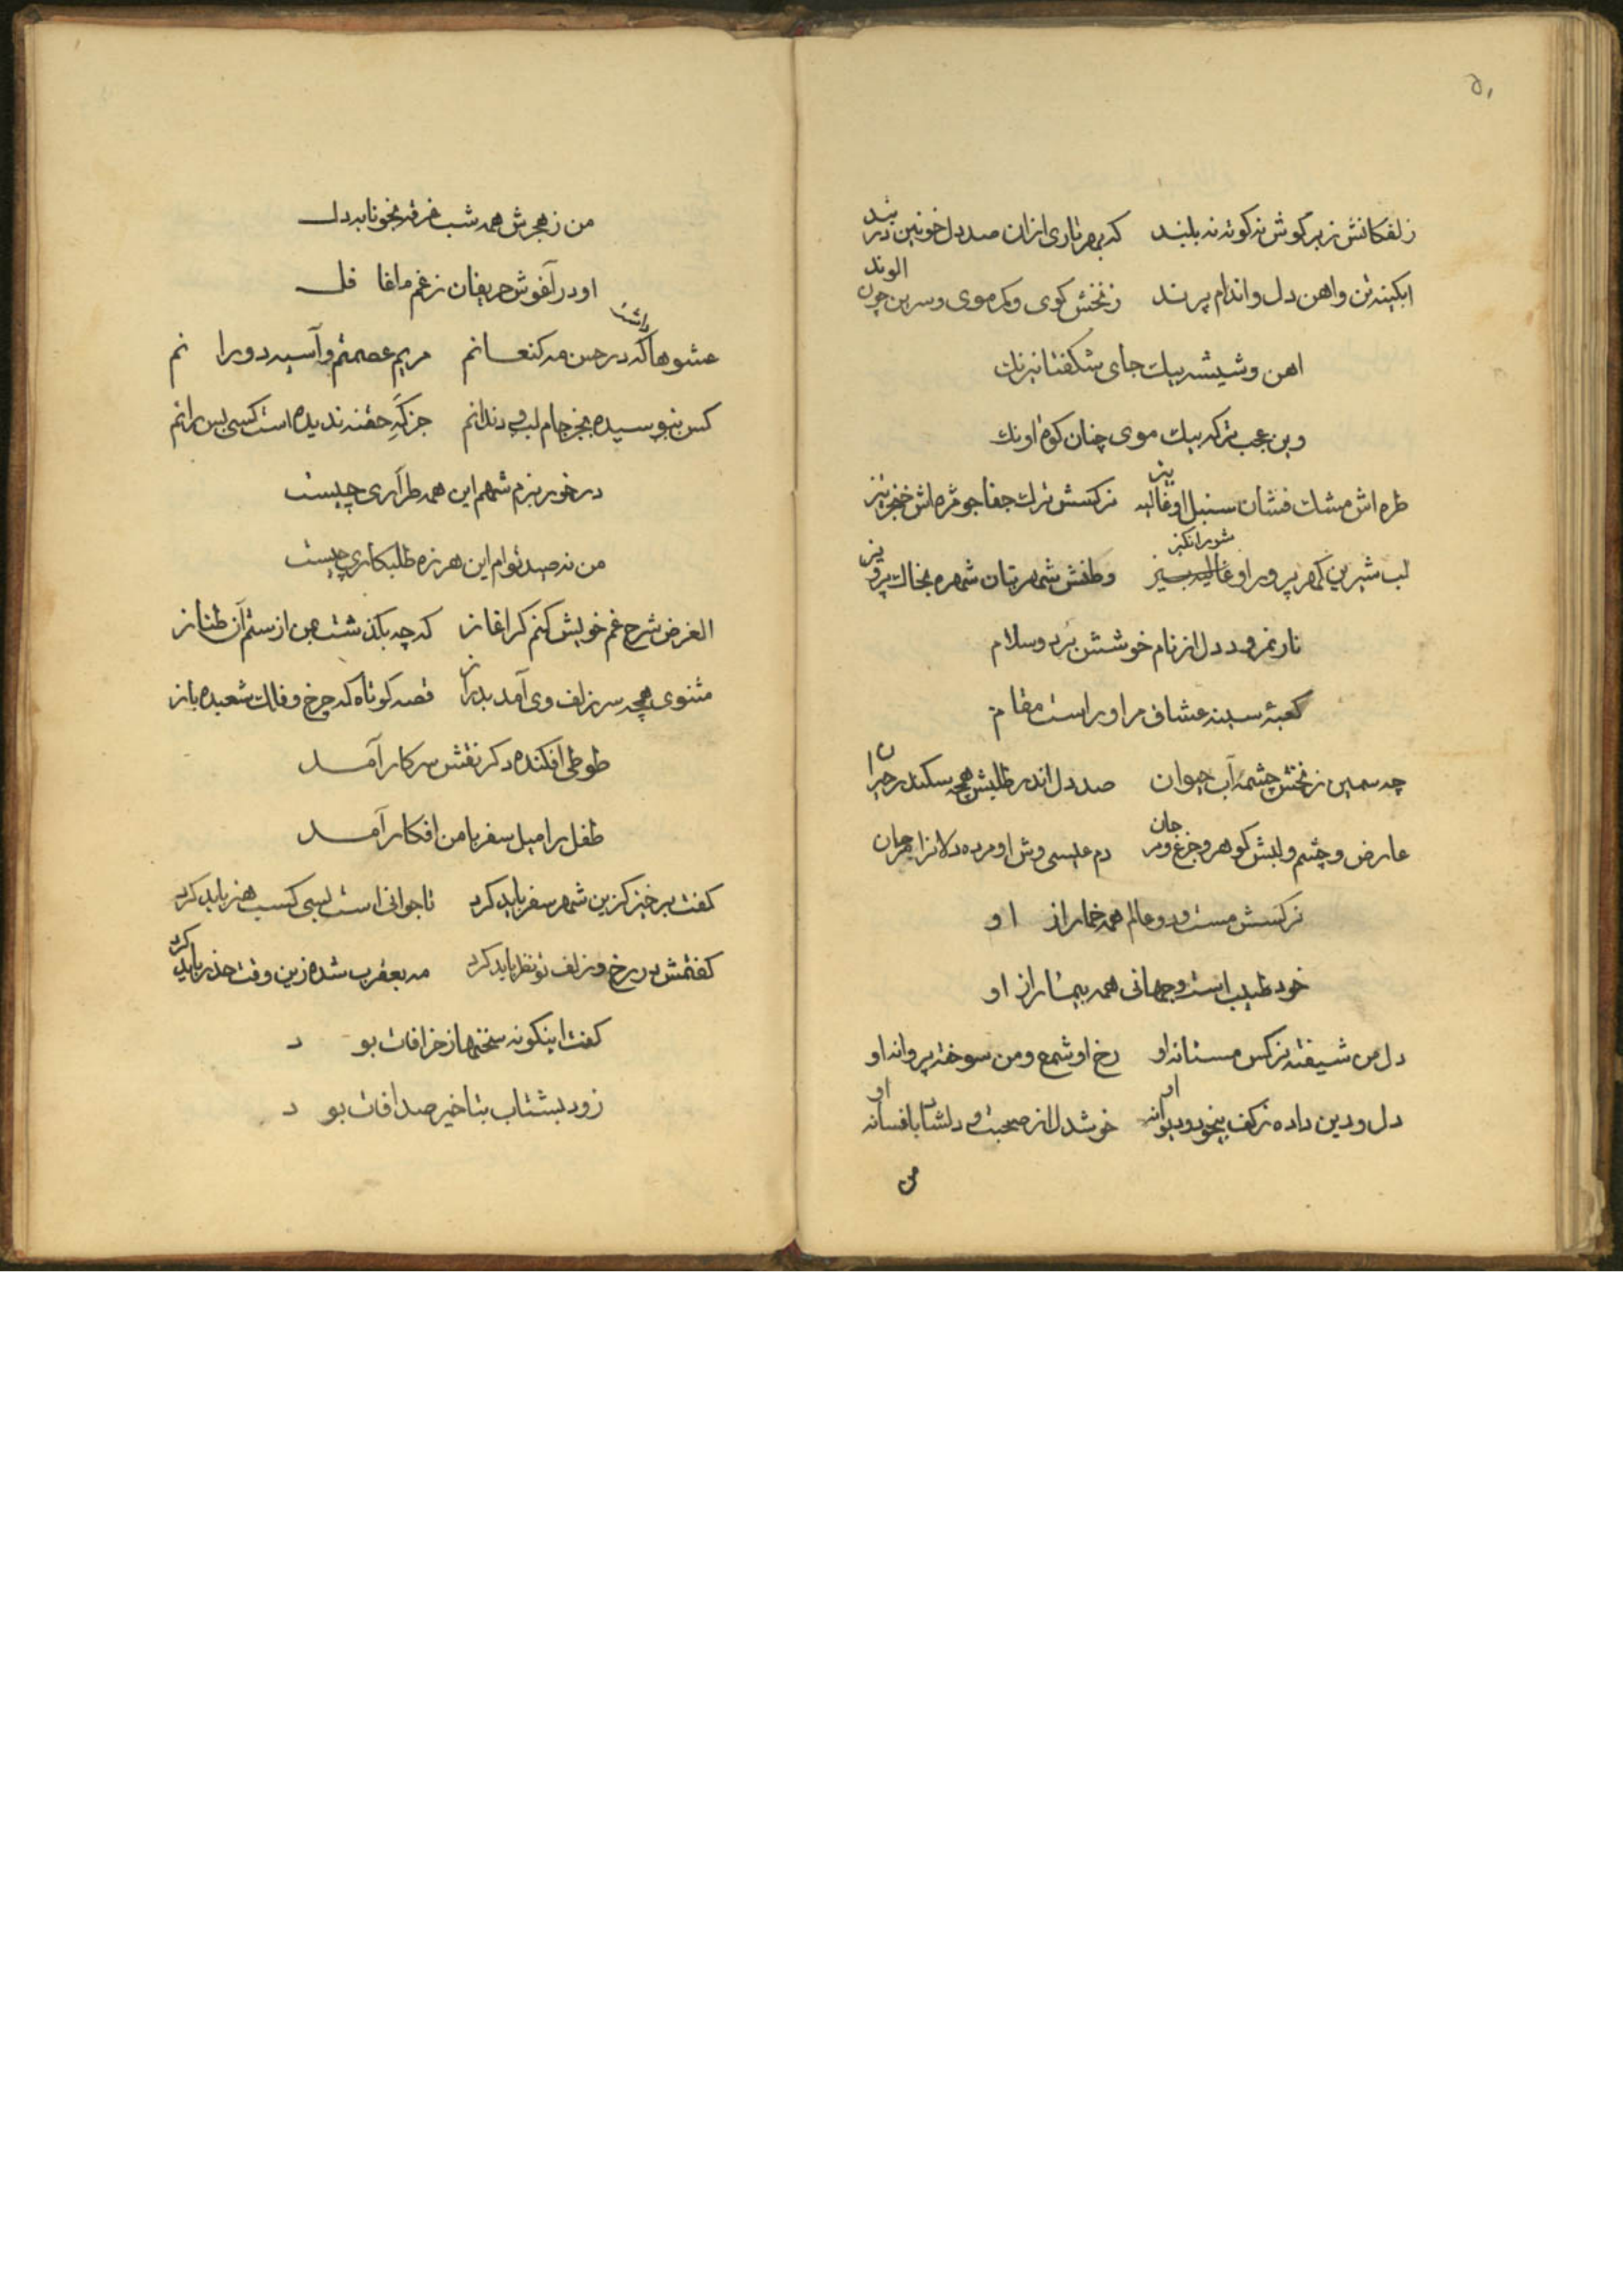 ۵۱
زلفکانش زبر کوش نه کوته نه بلند که بهر تاری ازان صد دل خونین در بند
ابکینه تن واهن دل واندام پرند زنخش کوی وکمر موی وسرین چون الوند
اهن وشیشه بیک جای شکفتا نیرنک
وین عجب تر که بیک موی چنان کوه اونک
طره اش مشک فشان سنبل او غالیه بیز نرکسش ترک جفا جو مژه اش خنجر تیز
لب شیرین کهر پرور او شور انکیز وطنش شهر بتان شهره بخاک پرویز
نار نمرود دل از نام خوشش برد وسلام
کعبهٔ سینه عشاق مر او راست مقام
چه سمین زنخش چشمهٔ آب حیوان صد دل اندر طلبش همچه سکندر حیران
عارض وچشم ولبش کوهر وجزع ومرجان دم عیسی وش او مرده دلانرا همه جان
نرکسش مست ودو عالم همه خمار از او
خود طبیب است وجهانی همه بیمار از او
دل من شیفته نرکس مستانه او رخ او شمع ومن سوخته پروانه او
دل ودین داده زکف بیخود ودیوانه او خوشدل از صحبت و دلشاد با فسانه او
من
من زهجرش همه شب غرقه بخونابه دل
او در آغوش حریفان زغم ما غافل
عشوها داشت که در حسن مه کنعانم مریم عصمتم وآسیه دورانم
کس نبوسیده بجز جام لب و دندانم جز که حقنه ندیده است کسی بس رانم
در خور بزم شهم این همه طراری چیست
من نه صید توام این هرزه طلبکاری چیست
الغرض شرح غم خویش کنم کر اغاز که چه بکذشت بمن از ستم آن طناز
مثنوی همچه سر زلف وی آمد بدراز قصه کوتاه که چرخ وفلک شعبده باز
طوطی افکنده دکر نقش سر کار آمد
طفل را میل سفر با من افکار آمد
کفت برخیز کزین شهر سفر باید کرد تا جوانی است بسی کسب هنر باید کرد
کفتمش در رخ وزلف تو نظر باید کرد مه بعقرب شده زین وقت حذر باید کرد
کفت اینکونه سخنها ز خرافات بود
زود بشتاب بتاخیر صد افات بود